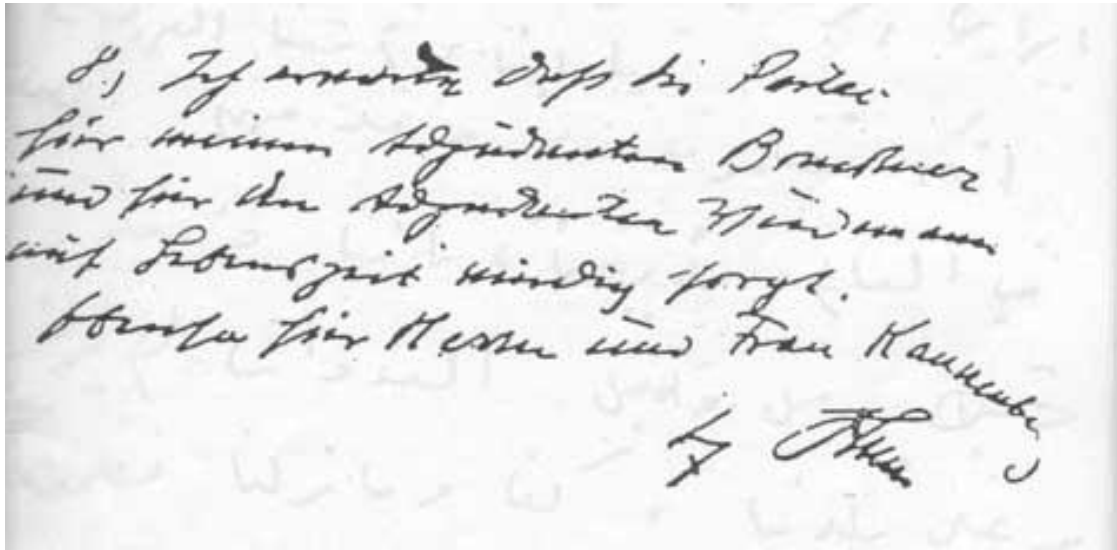 8.) Ich erwarte daß die Partei
für meinen Adjudanten Bruckner
und für den Adjudanten Wiedmann
auf Lebenszeit würdig sorgt.
Ebenso für Herrn und Frau Kannenberg